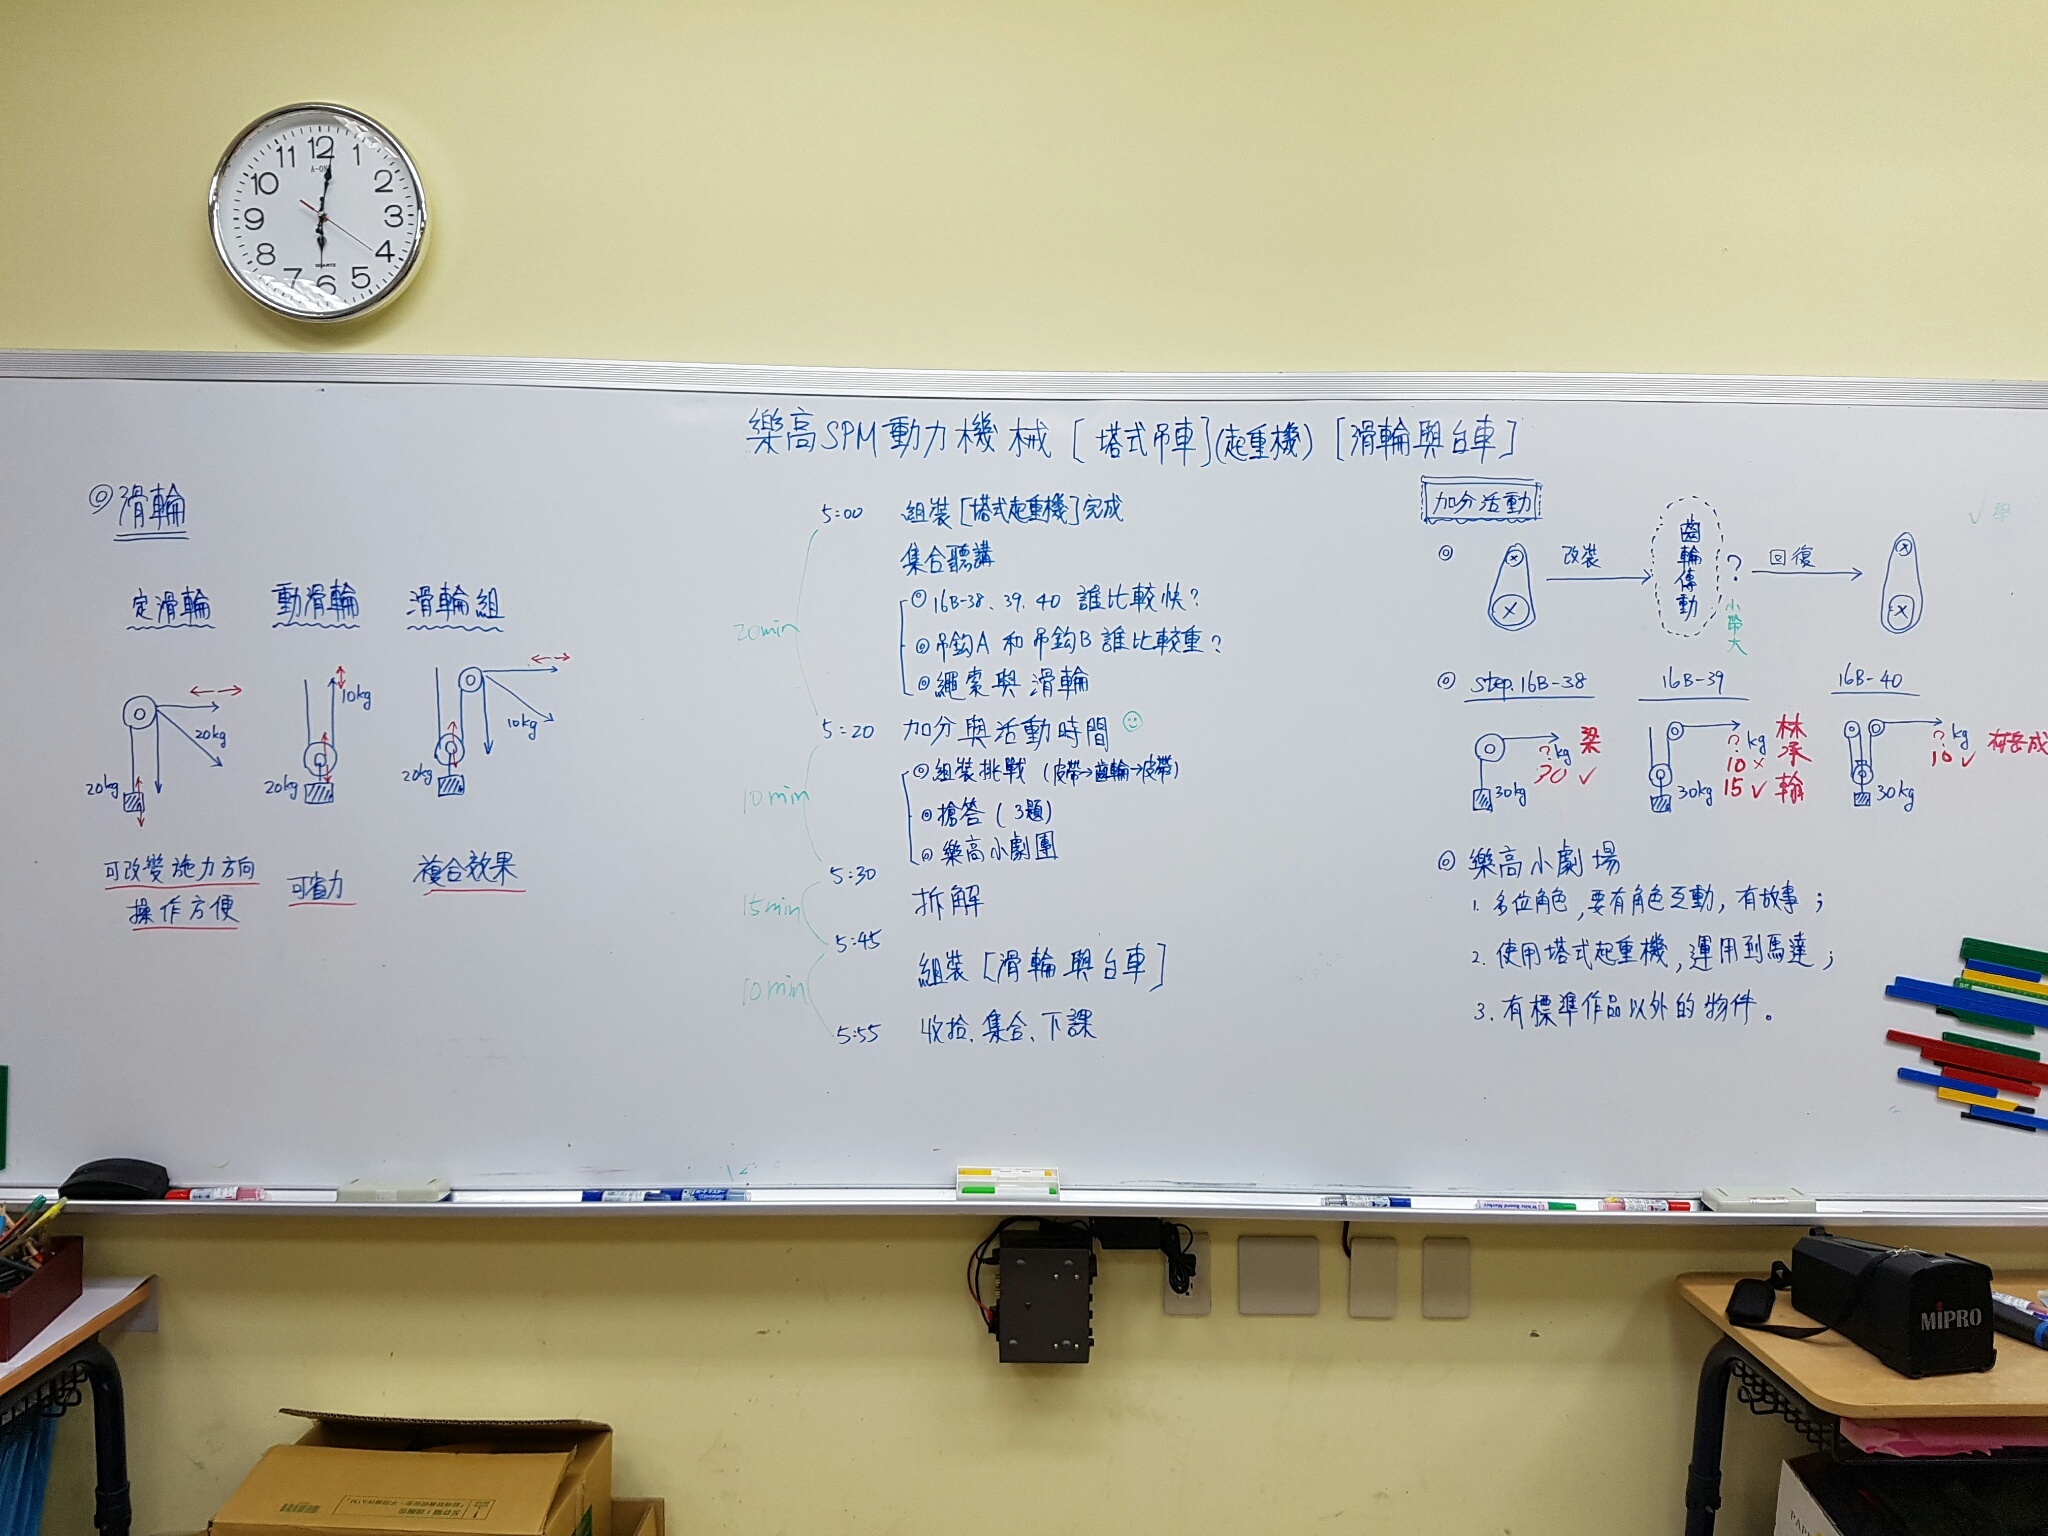 12
11 1
10 2
9 3
8 4
7 5
6
QUARTZ
樂高SPM動力機械 [塔式吊車](起重機) [滑輪與台車]
◎滑輪
定滑輪
動滑輪
滑輪組
20kg
20kg
10kg
20kg
10kg
20kg
可改變施力方向
操作方便
可省力
複合效果
5:00 組裝[塔式起重機]完成
集合聽講
◎16B-38、39、40 誰比較快?
◎吊鉤A 和吊鉤B 誰比較重?
◎繩索與滑輪
20min
5:20 加分與活動時間
◎組裝挑戰 (皮帶→齒輪→皮帶)
◎搶答 (3題)
◎樂高小劇團
10min
5:30 拆解
15min
5:45 組裝[滑輪與台車]
10min
5:55 收拾、集合、下課
加分活動
◎ 改裝 齒輪傳動? 回復
小帶大
◎ step.16B-38 16B-39 16B-40
?kg 梁
30 ✓
30kg
?kg 林承翰
10 ×
15 ✓
30kg
?kg
10 ✓
30kg
◎樂高小劇場
1. 多位角色,要有角色互動,有故事;
2. 使用塔式起重機,運用到馬達;
3. 有標準作品以外的物件。
MIPRO